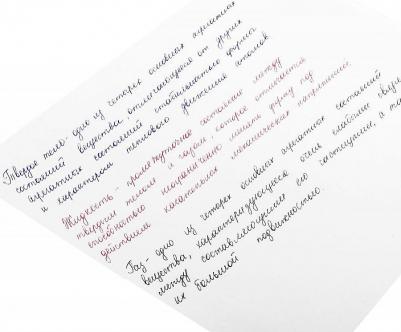 Твердое тело - одно из четырех основных агрегатных
состояний вещества, отличающееся от других
агрегатных состояний стабильностью формы
и характером теплового движения атомов
Жидкость - промежуточное состояние между
твердым телом и газом, которое отличается
способностью неограниченно менять форму под
действием касательных механических напряжений.
Газ - одно из четырех основных агрегатных состояний
вещества, характеризующееся очень слабыми связями
между составляющими его частицами, а также
их большой подвижностью.